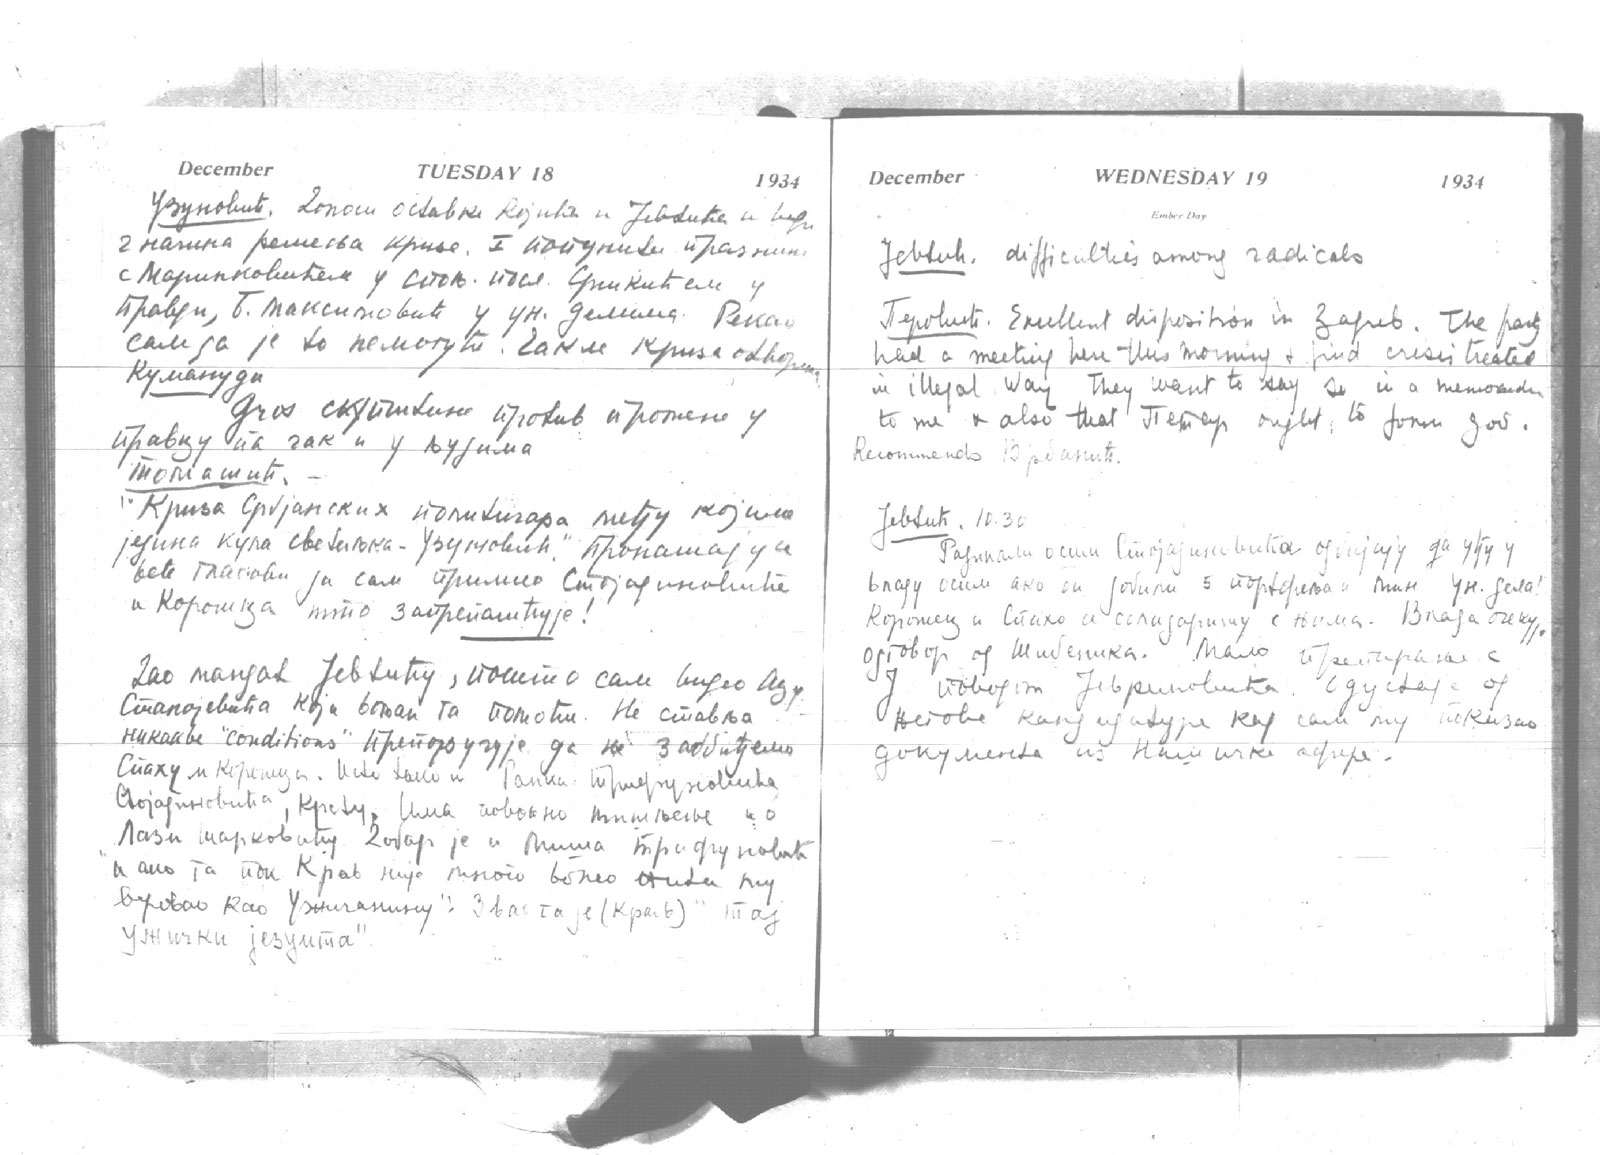 December TUESDAY 18 1934
Узуновић. Доноси оставке Којића и Јевтића и види
2 начина решења кризе. I попунити празнине
с Маринковићем у спољ. посл. Сршкићем у
Правди, Б. Максимовић у ун. делима. Рекао
сам да је то немогуће. Дакле криза отворена
Кумануди
Gros скупштине против промене у
правцу па чак и у људима
Томашић. –
"Криза Србјанских политичара међу којима
једина кула светиља - Узуновић." Пронашају се
веће гласови да сам примио Стојадиновића
и Корошца што запрепашћује!
Дао мандат Јевтићу, пошто сам видео Ацу
Станојевића који вољан га помоћи. Не ставља
никакве "conditions" препоручује да не заобиђемо
Спаху и Корошца. Исто тако и Трифуновића
Стојадиновића, Има повољно мишљење и о
Лази Марковићу. Добар је и Миша Трифуновић
"и ако га пок Краљ није много волео нити му
веровао као Ужичанину". Звао га је (Краљ) "тај
ужички језуита"
December WEDNESDAY 19 1934
Ember Day
Јевтић. difficulties among radicals
Перовић. Excellent disposition in Zagreb. The party
had a meeting here this morning & find crisis treated
in illegal way They want to say so in a memorandum
to me & also that Петар ought to form gov.
Recommends Врбанић.
Јевтић. 10.30
Радикали осим Стојадиновића одбијају да уђу у
владу осим ако би добили 5 портфеља и мин ун. дела!
Корошец и Спахо се солидаришу с њима. Влада очекује
одговор од Шибеника. Мало препирање с
Ј поводом Јевремовића. Одустаје од
његове кандидатуре кад сам му показао
документа из Нашичке афере.